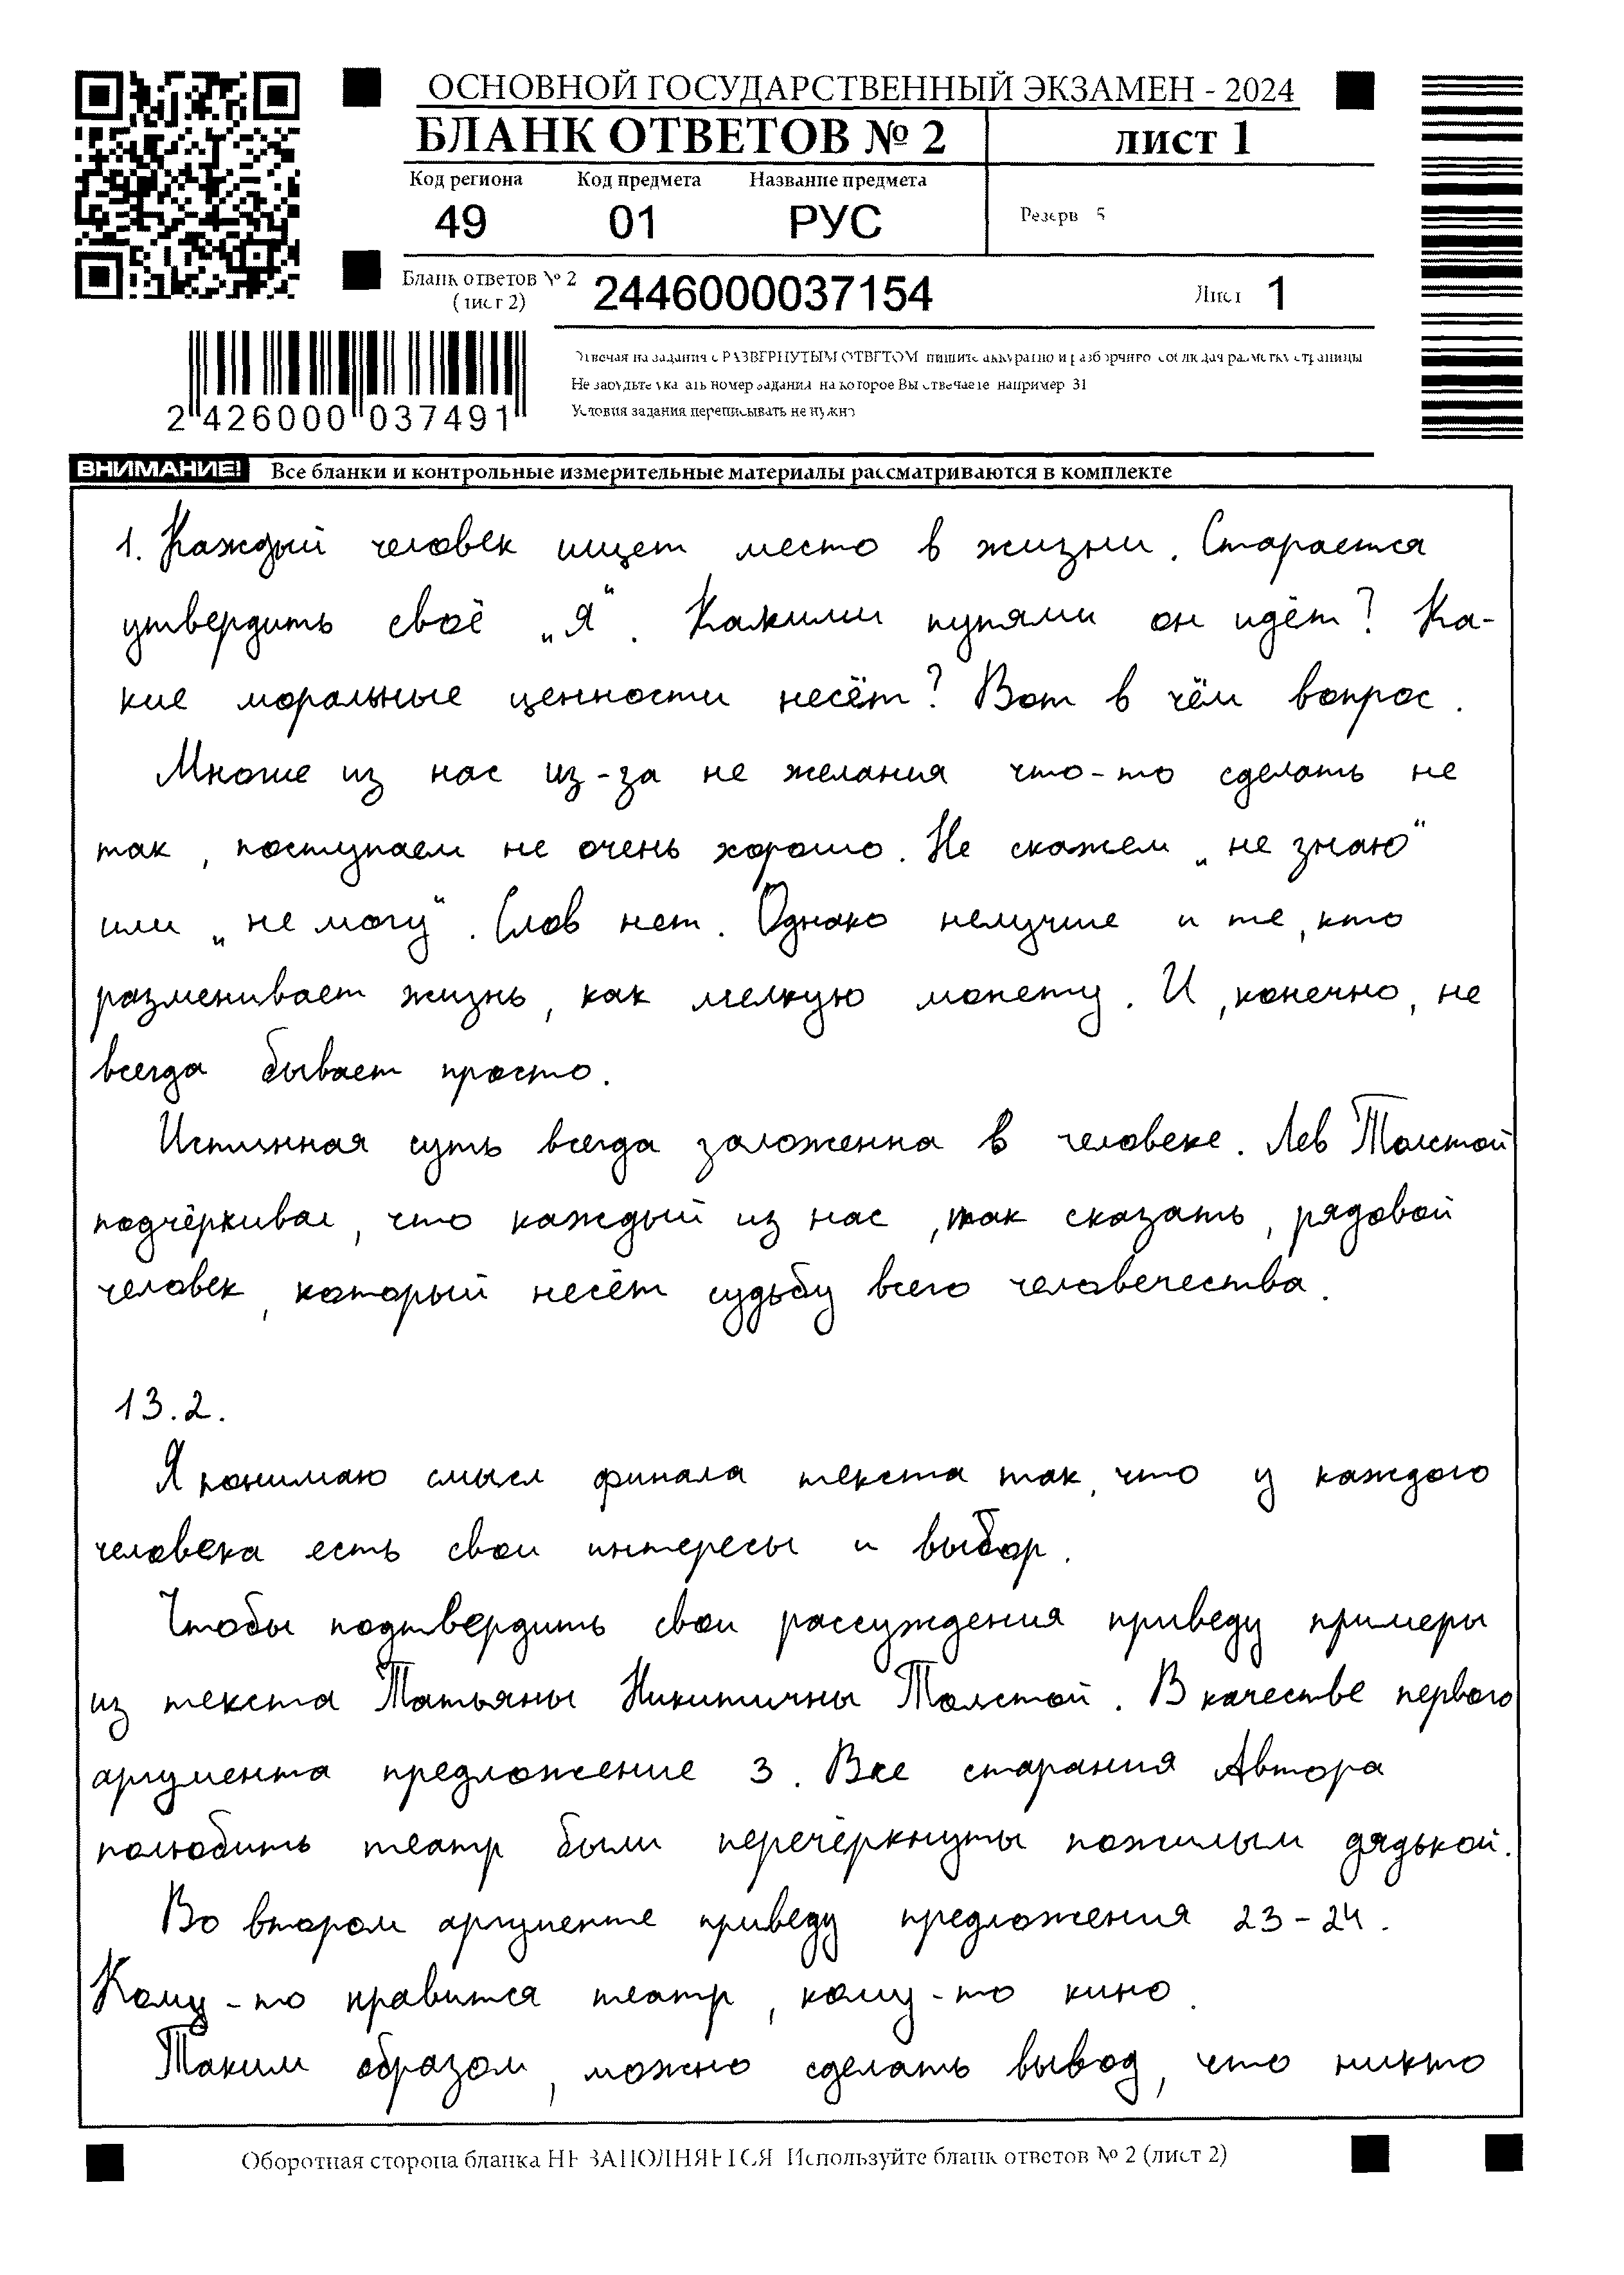 ОСНОВНОЙ ГОСУДАРСТВЕННЫЙ ЭКЗАМЕН - 2024
БЛАНК ОТВЕТОВ № 2
ЛИСТ 1
Код региона Код предмета Название предмета
49 01 РУС
Резерв 5
Бланк ответов № 2
(лист 2)
2446000037154
Лист 1
2 426000 037491
Отвечая на задания с РАЗВЕРНУТЫМ ОТВЕТОМ пишите аккуратно и разборчиво соблюдая разметку страницы
Не забудьте указать номер задания на которое Вы отвечаете например 31
Условия задания переписывать не нужно
ВНИМАНИЕ! Все бланки и контрольные измерительные материалы рассматриваются в комплекте
1. Каждый человек ищет место в жизни. Старается
утвердить своё „Я“. Какими путями он идёт? Ка-
кие моральные ценности несёт? Вот в чём вопрос.
Многие из нас из-за не желания что-то сделать не
так, поступаем не очень хорошо. Не скажем „не знаю“
или „не могу“. Слов нет. Однако нелучше и те, кто
разменивает жизнь, как мелкую монету. И, конечно, не
всегда бывает просто.
Истинная суть всегда заложенна в человеке. Лев Толстой
подчёркивал, что каждый из нас, так сказать, рядовой
человек, который несёт судьбу всего человечества.
13.2.
Я понимаю смысл финала текста так, что у каждого
человека есть свои интересы и выбор.
Чтобы подтвердить свои рассуждения приведу примеры
из текста Татьяны Никитичны Толстой. В качестве первого
аргумента предложение 3. Все старания Автора
полюбить театр были перечёркнуты пожилым дядькой.
Во втором аргументе приведу предложения 23-24.
Кому-то нравится театр, кому-то кино.
Таким образом, можно сделать вывод, что никто
Оборотная сторона бланка НЕ ЗАПОЛНЯЕТСЯ Используйте бланк ответов № 2 (лист 2)